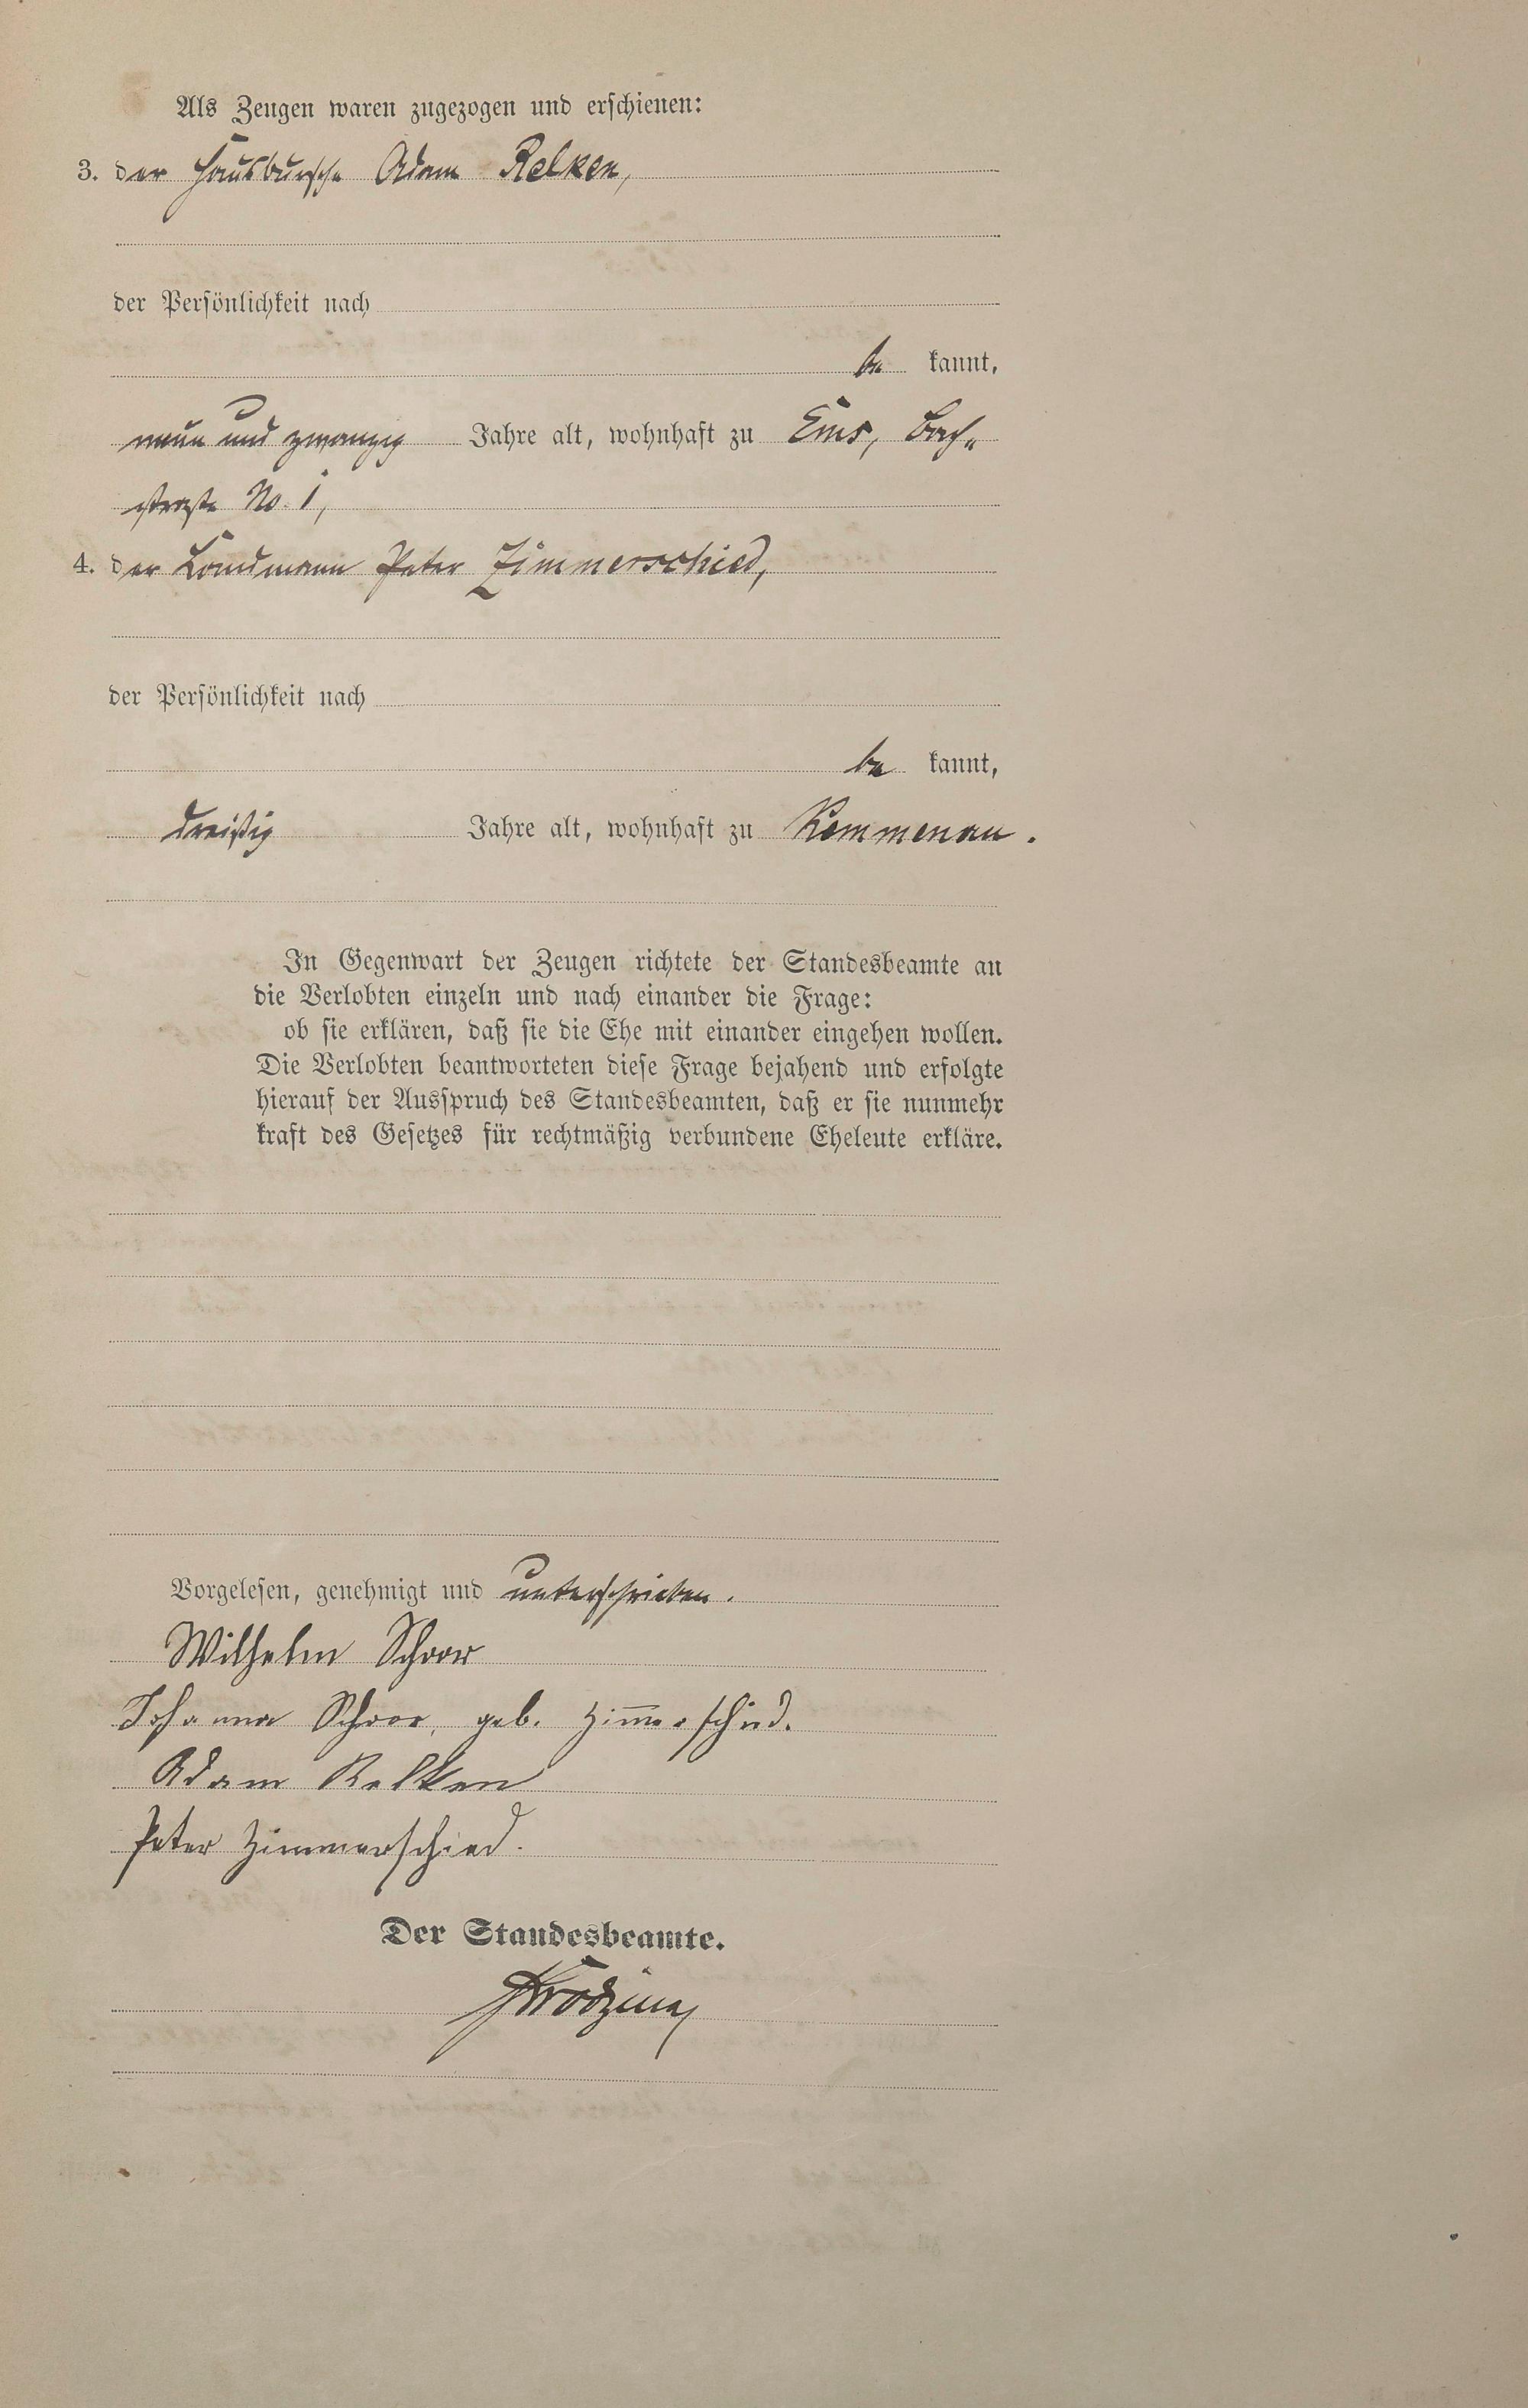 Als Zeugen waren zugezogen und erschienen:
3. der Hausbursche Adam Relken,
der Persönlichkeit nach
be kannt,
neun und zwanzig Jahre alt, wohnhaft zu Ems, Bach-
straße No. 1,
4. der Landmann Peter Zimmerschied,
der Persönlichkeit nach
be kannt,
dreißig Jahre alt, wohnhaft zu Kemmenau.
In Gegenwart der Zeugen richtete der Standesbeamte an
die Verlobten einzeln und nach einander die Frage:
ob sie erklären, daß sie die Ehe mit einander eingehen wollen.
Die Verlobten beantworteten diese Frage bejahend und erfolgte
hierauf der Ausspruch des Standesbeamten, daß er sie nunmehr
kraft des Gesetzes für rechtmäßig verbundene Eheleute erkläre.
Vorgelesen, genehmigt und unterschrieben.
Wilhelm Schoor
Johanna Schoor, geb. Zim̄erschied.
Adam Relken
Peter Zimmerschied.
Der Standesbeamte.